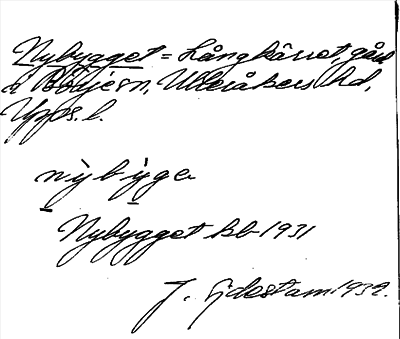 Nybygget = Långkärret, gård
i Bälinge sn, Ulleråkers hd,
Upps. l.
nỳbỳge
Nybygget kb 1931
J. Sjdestam 1932.